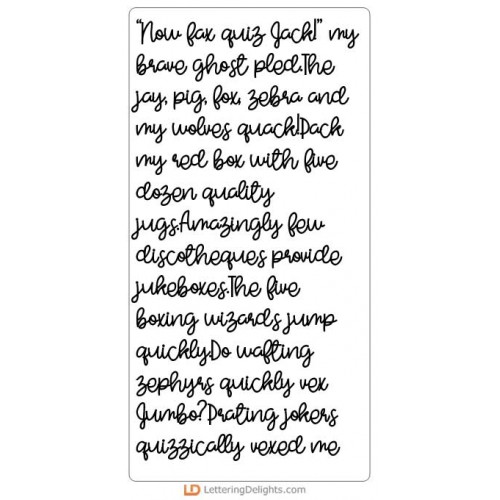 “Now fax quiz Jack!” my
brave ghost pled.The
jay, pig, fox, zebra and
my wolves quack!Pack
my red box with five
dozen quality
jugs.Amazingly few
discotheques provide
jukeboxes.The five
boxing wizards jump
quickly.Do wafting
zephyrs quickly vex
Jumbo?Prating jokers
quizzically vexed me
LD LetteringDelights.com